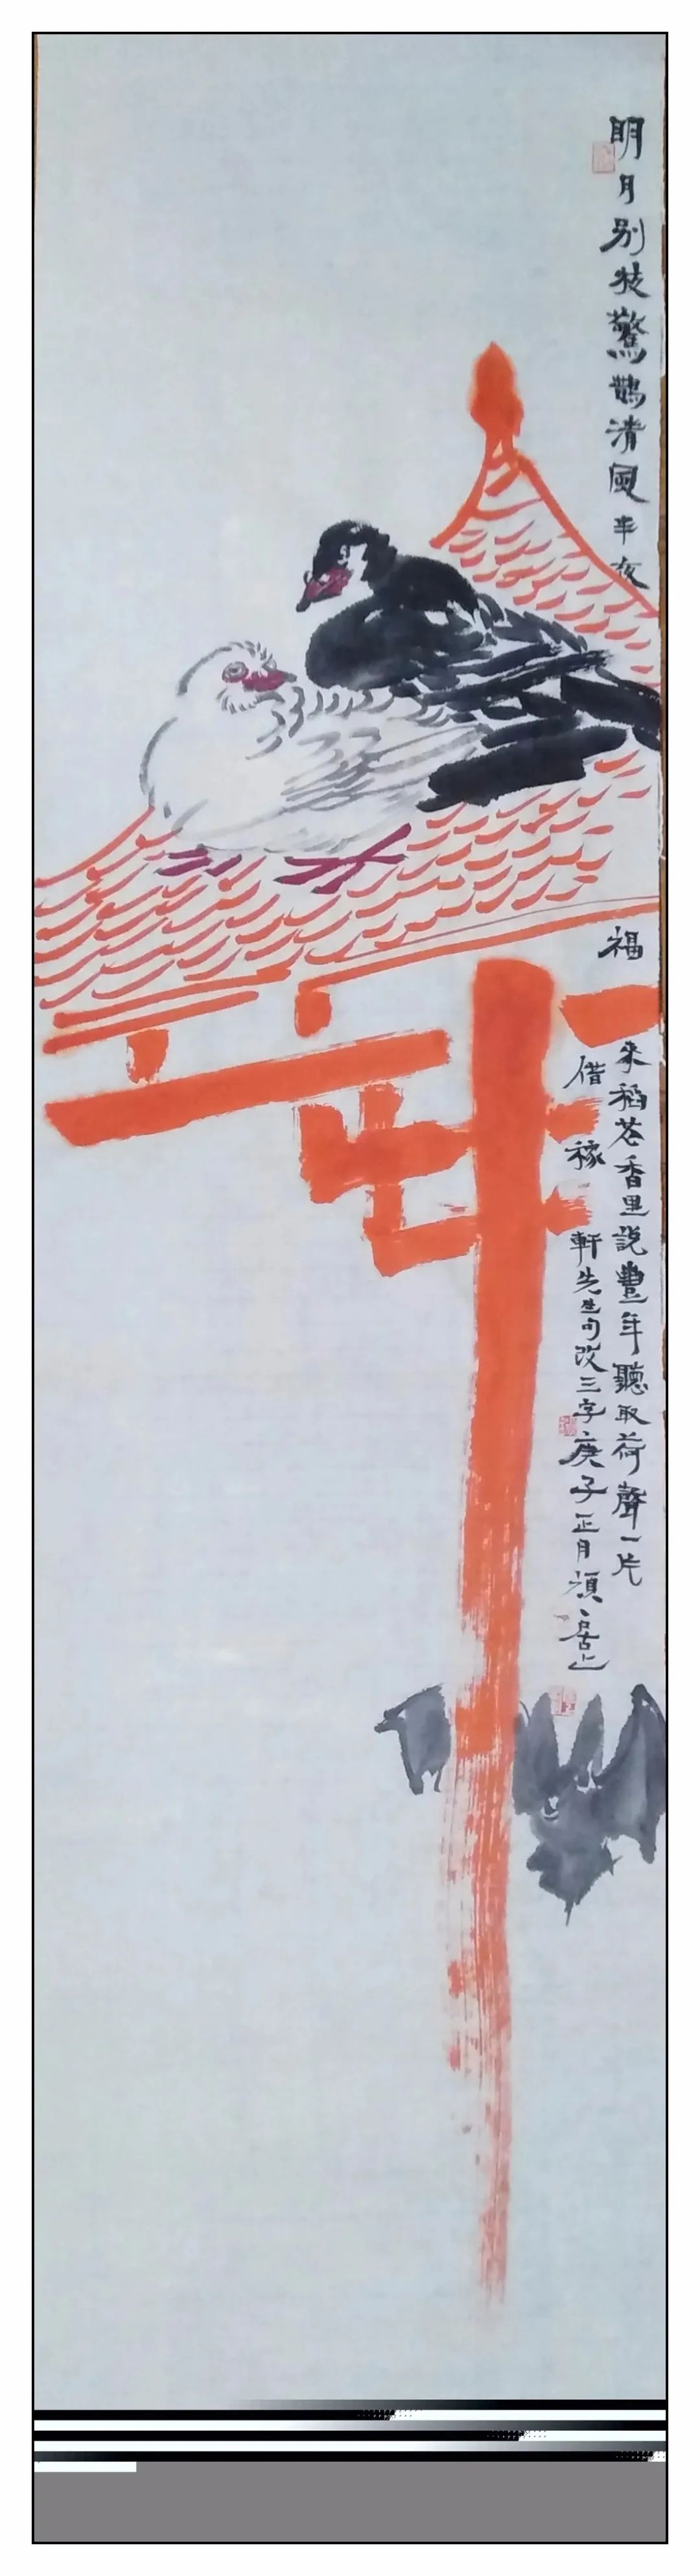 明月别枝驚鵲清風半夜
福
來稻花香里説豐年聽取荷聲一片
借稼軒先生句改三字庚子正月